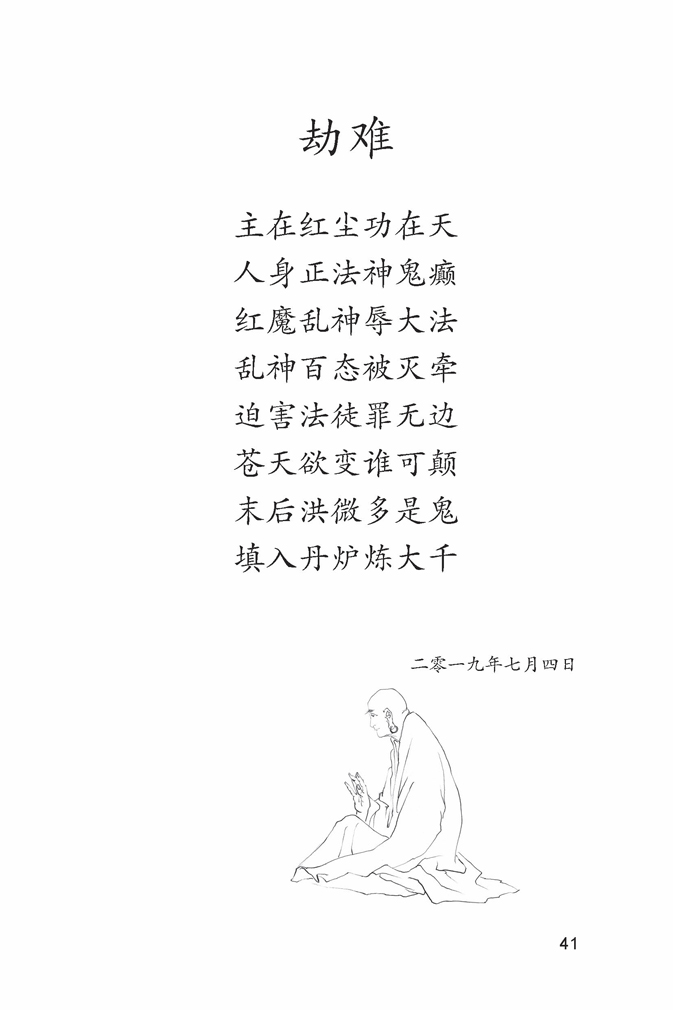 劫难
主在红尘功在天
人身正法神鬼癫
红魔乱神辱大法
乱神百态被灭牵
迫害法徒罪无边
苍天欲变谁可颠
末后洪微多是鬼
填入丹炉炼大千
二零一九年七月四日
41